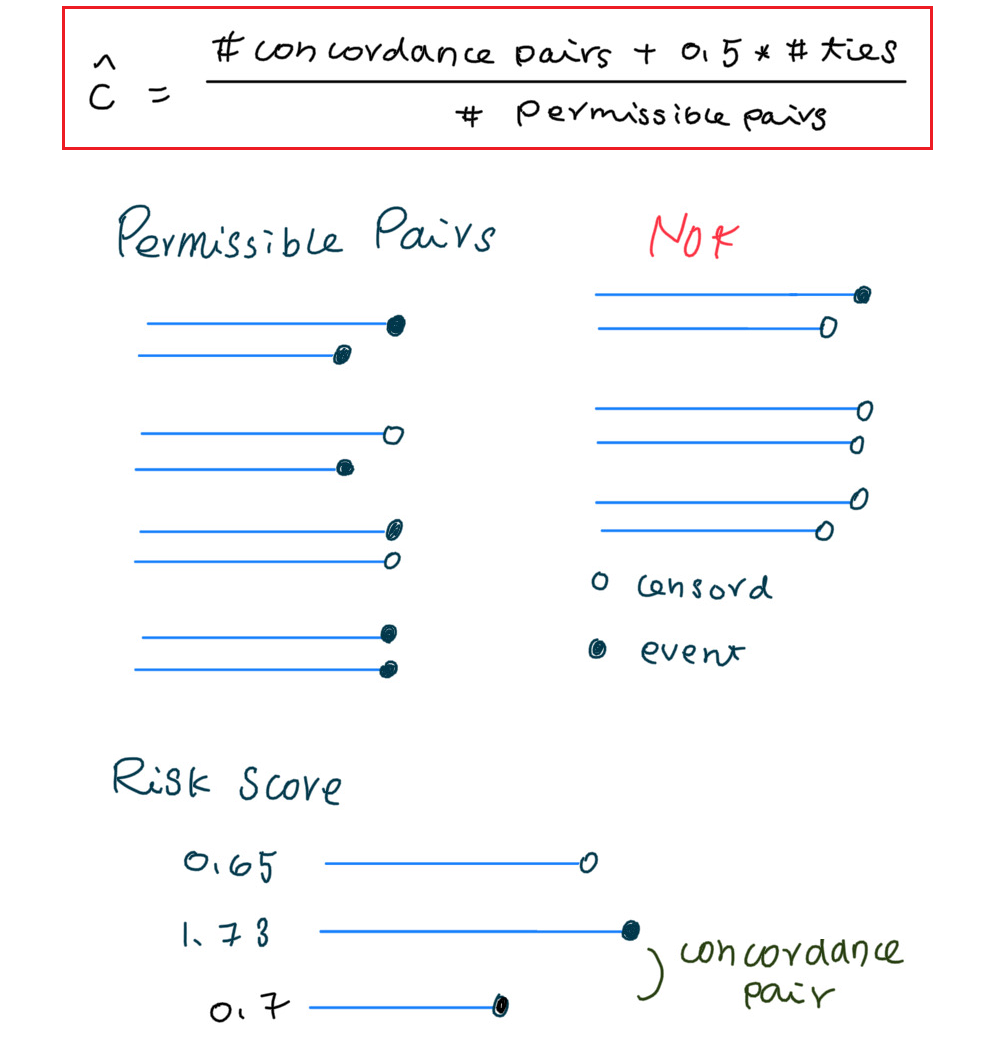 ĉ = # concordance pairs + 0.5 * # ties
# permissible pairs
Permissible Pairs
Nok
censord
event
Risk Score
0.65
1.73
0.7
concordance
pair